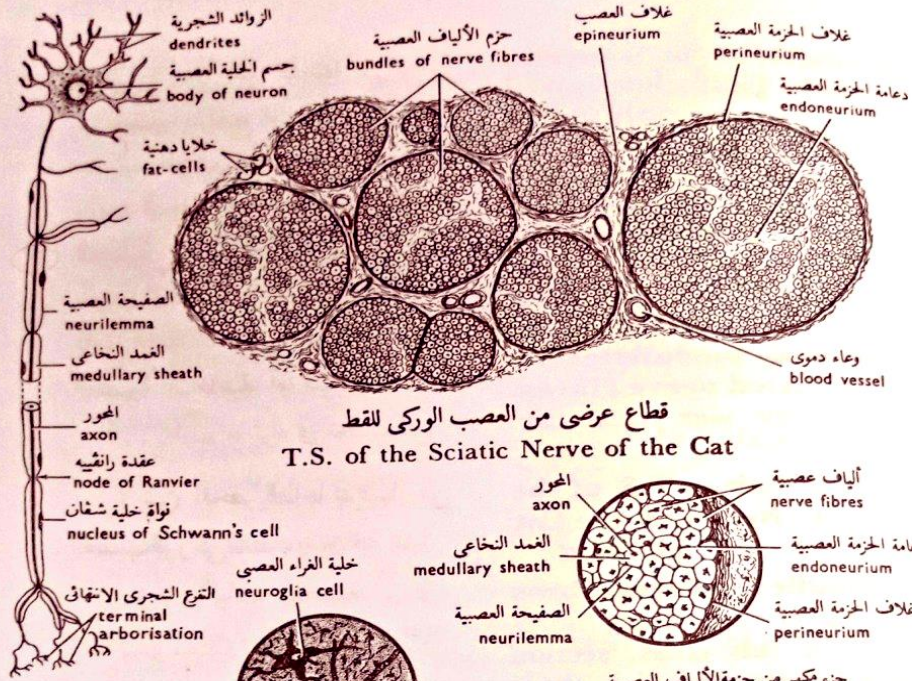 الزوائد الشجرية
dendrites
جسم الخلية العصبية
body of neuron
خلايا دهنية
fat-cells
الصفيحة العصبية
neurilemma
الغمد النخاعى
medullary sheath
المحور
axon
عقدة رانڤييه
node of Ranvier
نواة خلية شڤان
nucleus of Schwann's cell
التفرع الشجرى الانتهائى
terminal
arborisation
حزم الألياف العصبية
bundles of nerve fibres
غلاف العصب
epineurium
غلاف الحزمة العصبية
perineurium
دعامة الحزمة العصبية
endoneurium
وعاء دموى
blood vessel
قطاع عرضى من العصب الوركى للقط
T.S. of the Sciatic Nerve of the Cat
خلية الغراء العصبى
neuroglia cell
المحور
axon
الغمد النخاعى
medullary sheath
الصفيحة العصبية
neurilemma
ألياف عصبية
nerve fibres
الحزمة العصبية
endoneurium
غلاف الحزمة العصبية
perineurium
جزء مكبر من حزمة الألياف العصبية